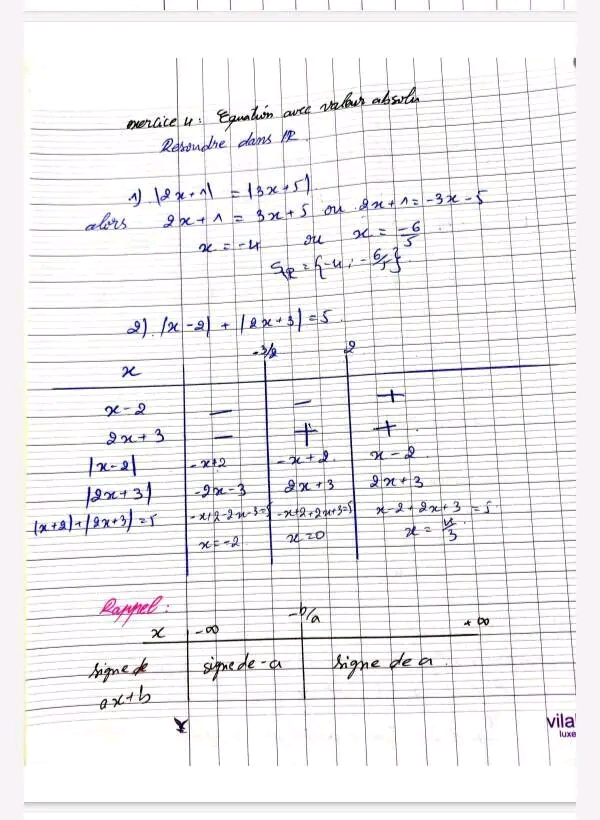 exercice 4: Equation avec valeur absolu
Resoudre dans IR
1) |2x+1| = |3x+5|
alors 2x+1 = 3x+5 ou 2x+1=-3x-5
x = -4 ou x = -6/5
S_R = {-4; -6/5}
2) |x-2| + |2x+3| = 5
x -3/2 2
x-2 - - +
2x+3 - + +
|x-2| -x+2 -x+2 x-2
|2x+3| -2x-3 2x+3 2x+3
|x+2|+|2x+3|=5 -x+2-2x-3=5 -x+2+2x+3=5 x-2+2x+3=5
x=-2 x=0 x=4/3
Rappel:
x -∞ -b/a +∞
signe de signe de -a signe de a
ax+b
vila
luxe